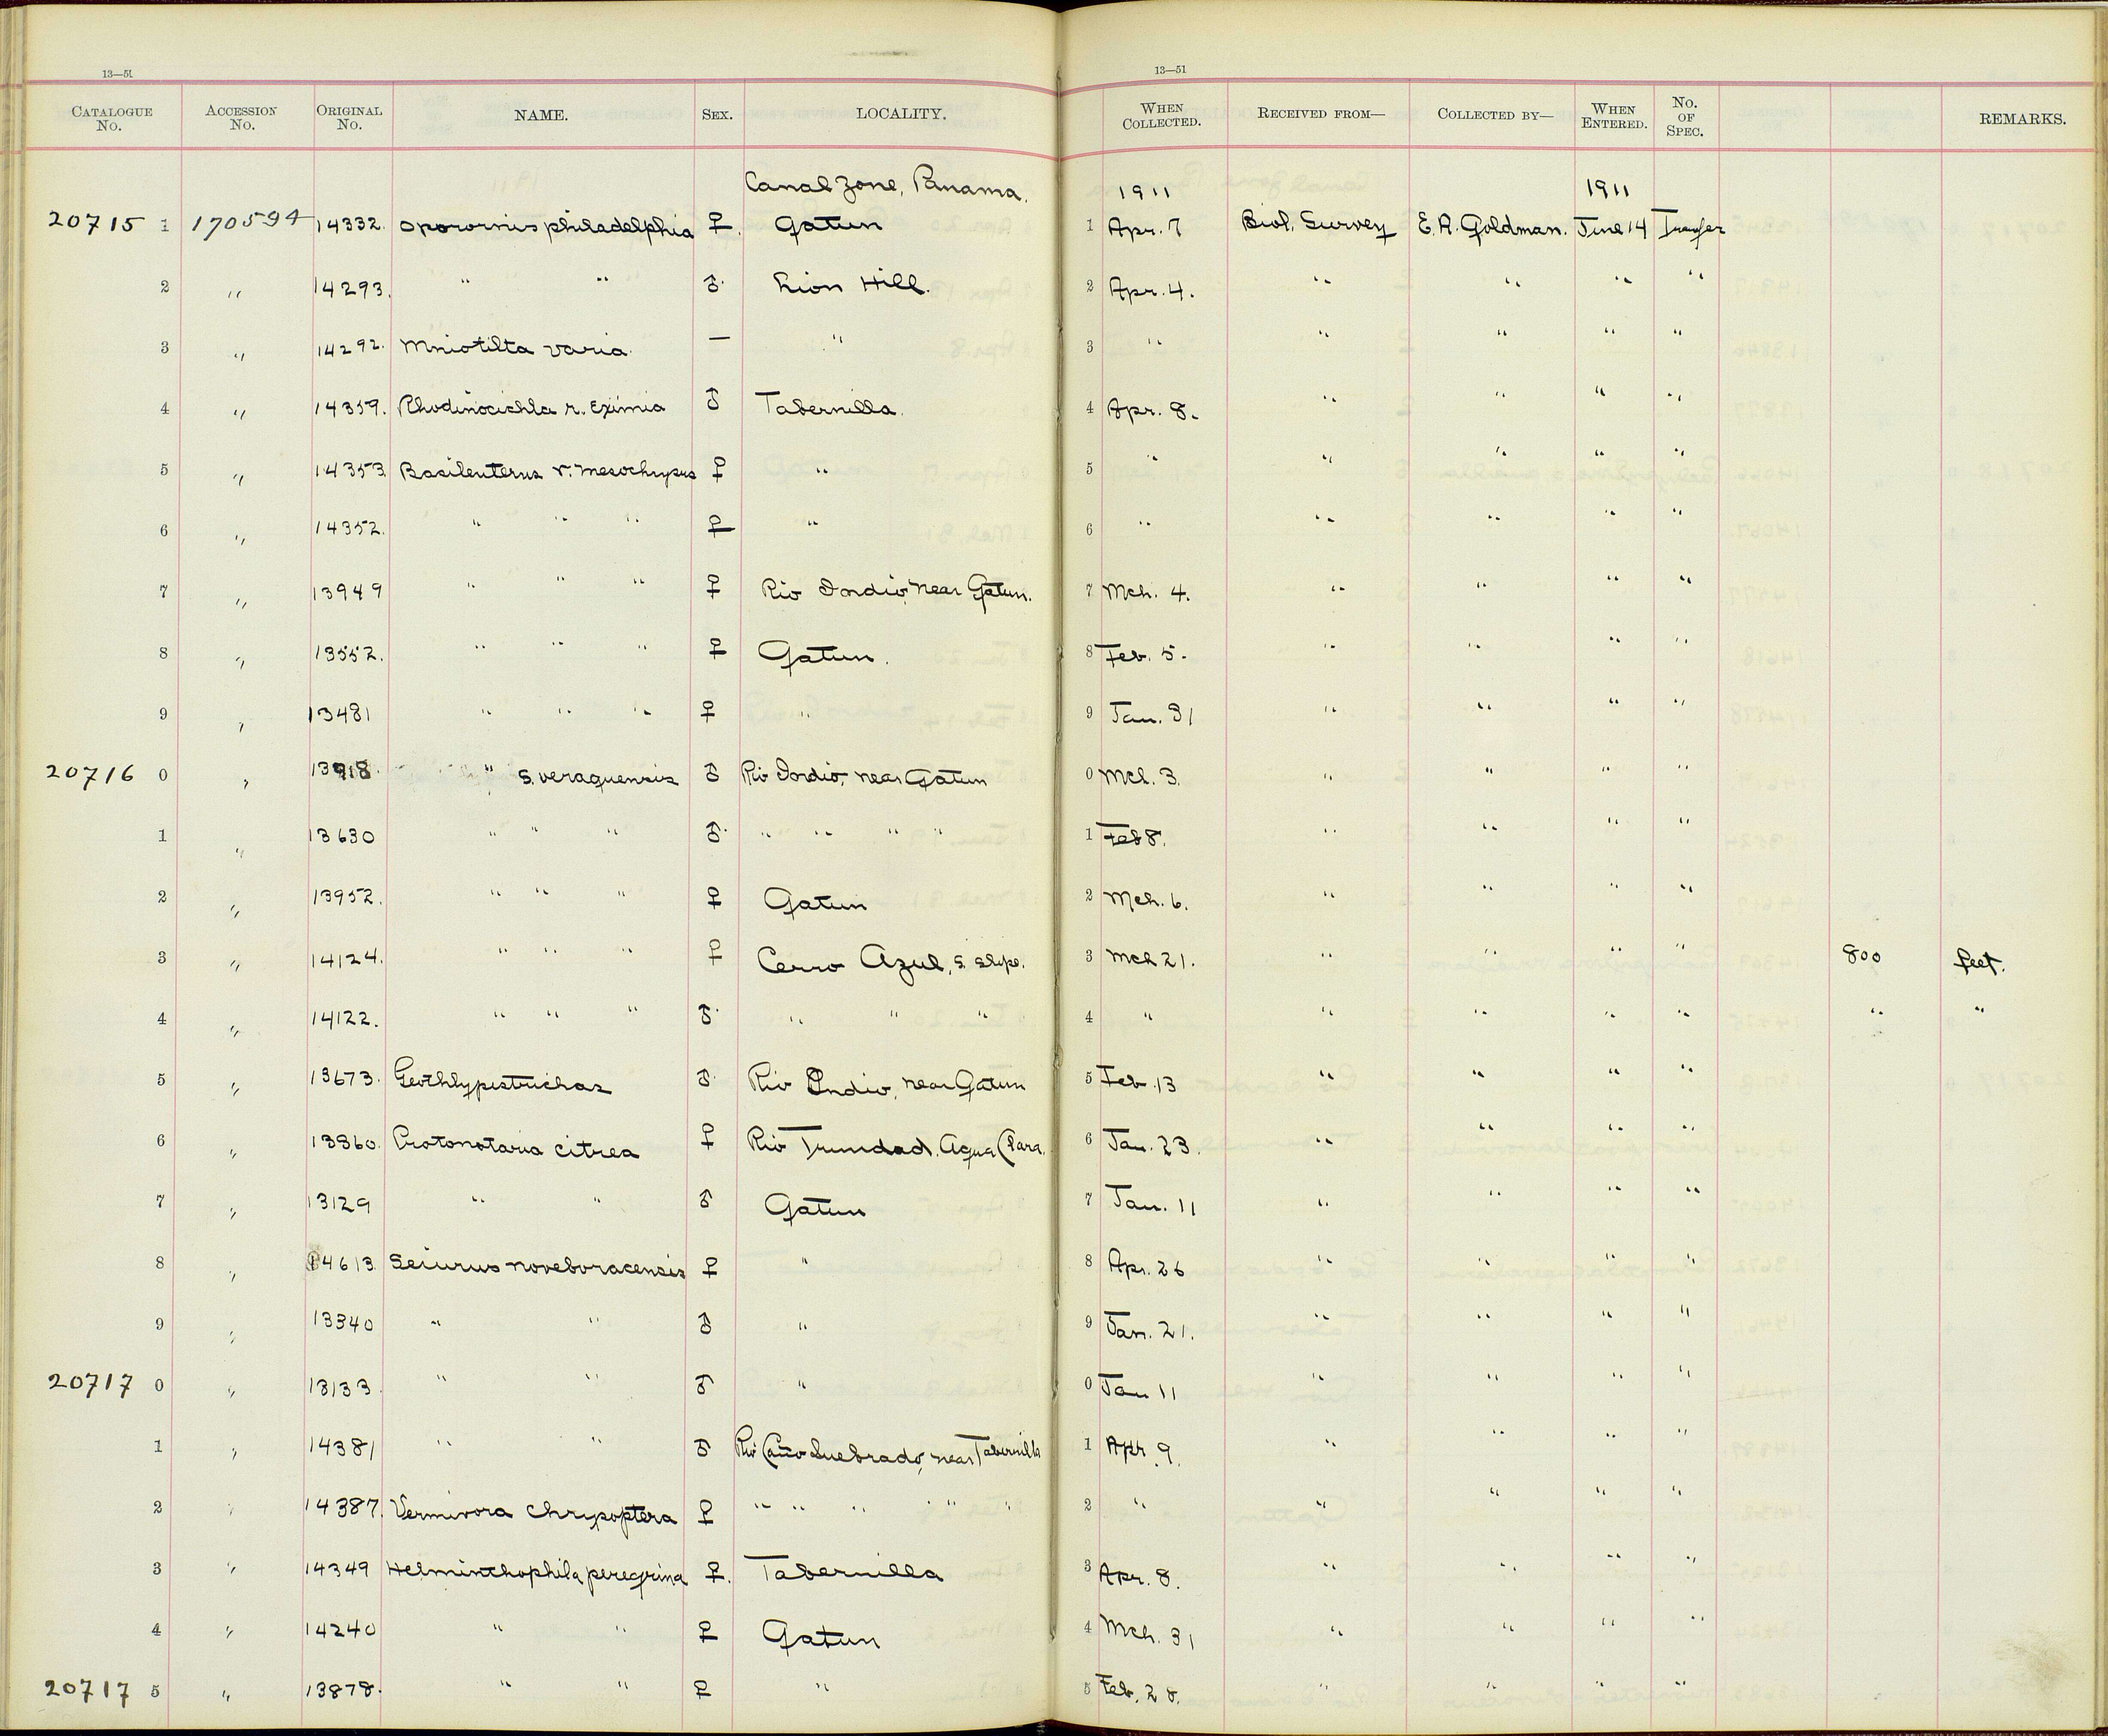 13—51 13—51
CATALOGUE No. ACCESSION No. ORIGINAL No. NAME. SEX. LOCALITY. WHEN COLLECTED. RECEIVED FROM— COLLECTED BY— WHEN ENTERED. No. OF SPEC. REMARKS.
Canal Zone, Panama. 1911 1911
20715 1 170594 14332. Oporornis philadelphia ♀. Gatun 1 Apr. 7 Biol. Survey E. A. Goldman. June 14 Transfer
2 " 14293. " " ♂. Lion Hill. 2 Apr. 4. " " " "
3 " 14292. Mniotilta varia. — " 3 " " " " "
4 " 14359. Rhodinocichla r. eximia ♂ Tabernilla. 4 Apr. 8. " " " "
5 " 14353 Basileuterus r. mesochrysus ♀ " 5 " " " " "
6 " 14352. " " " ♀ " 6 " " " " "
7 " 13949 " " " ♀ Rio Indio, near Gatun. 7 Mch. 4. " " " "
8 " 13552. " " " ♀ Gatun. 8 Feb. 5. " " " "
9 " 13481 " " " ♀ " 9 Jan. 31 " " " "
20716 0 " 13918. " s. veraguensis ♂ Rio Indio, near Gatun 0 Mch. 3. " " " "
1 " 13630 " " " ♂. " " " " 1 Feb 8. " " " "
2 " 13952. " " " ♀ Gatun 2 Mch. 6. " " " "
3 " 14124. " " " ♀ Cerro Azul, S. slope. 3 Mch 21. " " " " 800 feet.
4 " 14122. " " " ♂. " " " 4 " " " " " " "
5 " 13673. Geothlypis trichas ♂. Rio Indio, near Gatun 5 Feb. 13 " " " "
6 " 13360. Protonotaria citrea ♀ Rio Trinidad, Agua Clara. 6 Jan. 23. " " " "
7 " 13129 " " ♂ Gatun 7 Jan. 11 " " " "
8 " 14613. Seiurus noveboracensis ♀ " 8 Apr. 26 " " " "
9 " 13340 " " ♂ " 9 Jan. 21. " " " "
20717 0 " 13133. " " ♂ " 0 Jan 11 " " " "
1 " 14381 " " ♂ Rio Caño Quebrado, near Tabernilla 1 Apr. 9. " " " "
2 " 14387. Vermivora chrysoptera ♀ " " " " " " 2 " " " " "
3 " 14349 Helminthophila peregrina ♀. Tabernilla 3 Apr. 8. " " " "
4 " 14240 " " ♀ Gatun 4 Mch. 31 " " " "
20717 5 " 13878. " " ♀ " 5 Feb. 28. " " " "